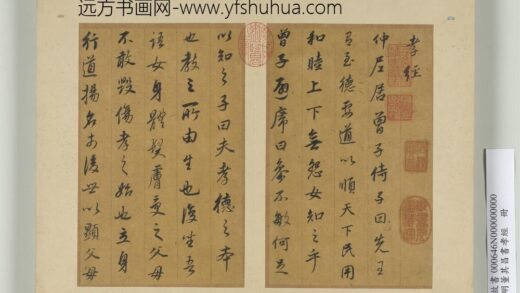 远方书画网-www.yfshuhua.com
孝經
仲尼居曾子侍子曰先王
有至德要道以順天下民用
和睦上下無怨女知之乎
曾子避席曰參不敏何足
以知之子曰夫孝德之本
也教之所由生也復坐吾
語女身體髮膚受之父母
不敢毀傷孝之始也立身
行道揚名於後世以顯父母
故書000646N000000000
明董其昌書孝經 冊